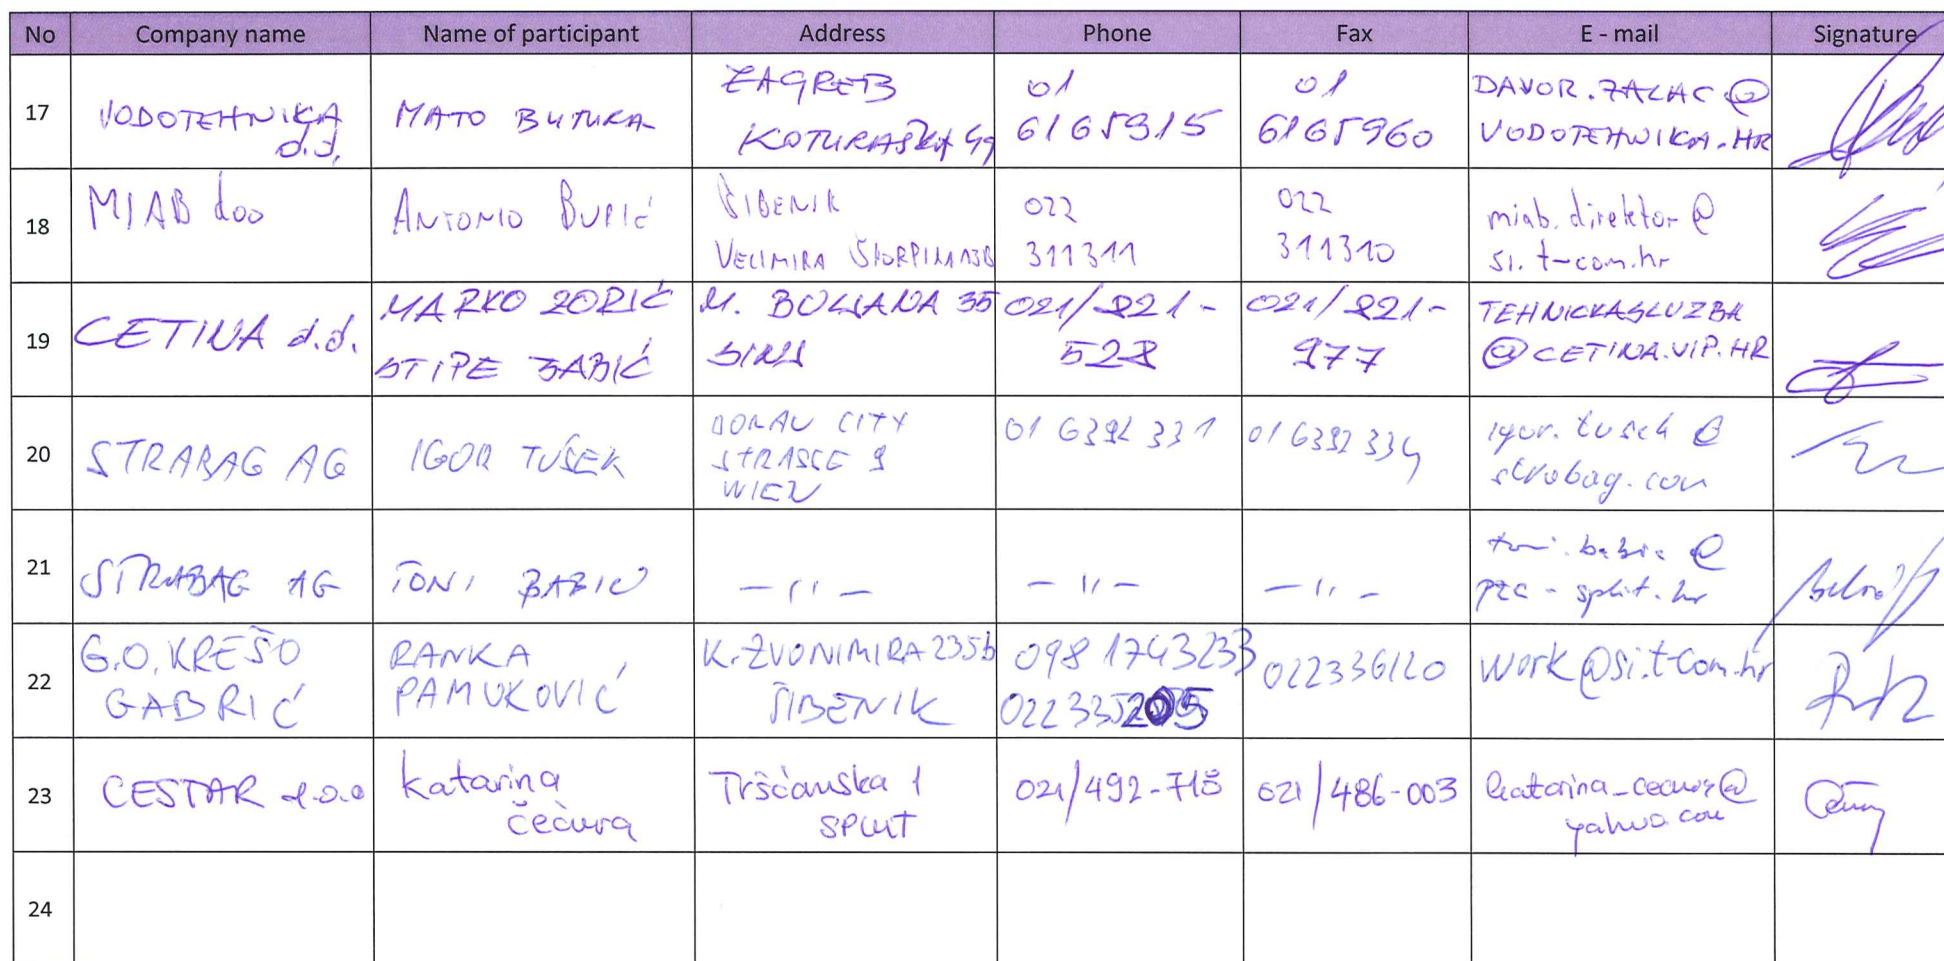 No Company name Name of participant Address Phone Fax E - mail Signature
17 VODOTEHNIKA d.d. MATO BUTURA ZAGREB KOTURAŠKA 49 01 6165915 01 6165960 DAVOR.ZALAC@ VODOTEHNIKA.HR
18 MIAB doo ANTONIO BURIĆ ŠIBENIK VELIMIRA ŠKORPIKA 13B 022 311311 022 311310 miab.direktor@ si.t-com.hr
19 CETINA d.d. MARKO ZORIĆ STIPE BABIĆ M. BOLJANA 35 SINJ 021/821- 528 021/821- 977 TEHNICKASLUZBA @CETINA.VIP.HR
20 STRABAG AG IGOR TUŠEK DONAU CITY STRASSE 9 WIEN 01 6392 331 01 6392 334 igor.tusek@ strabag.com
21 STRABAG AG TONI BABIĆ — 11 — — 11 — — 11 — toni.babic@ pzc-split.hr
22 G.O. KREŠO GABRIĆ RANKA PAMUKOVIĆ K.ZVONIMIRA 235b ŠIBENIK 098 1743233 022335205 022336120 work@si.t-com.hr
23 CESTAR d.o.o Katarina čečura Tršćanska 1 SPLIT 021/492-718 021/486-003 katarina_cecura@ yahoo.com
24